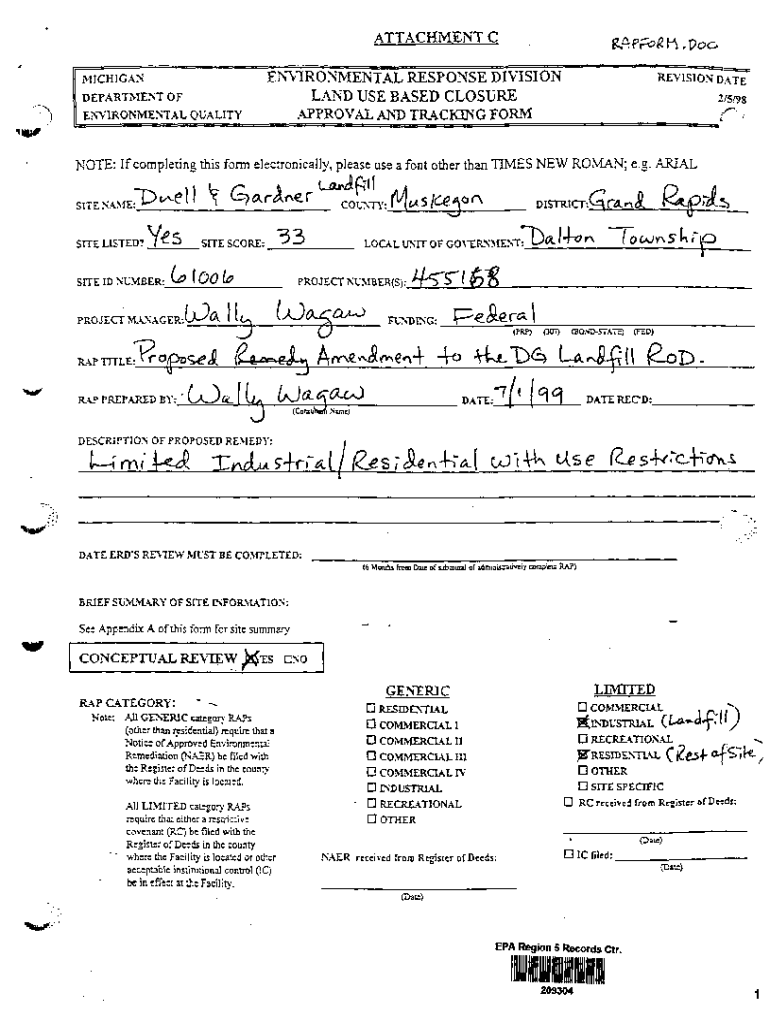 ATTACHMENT C
RAPFORM.DOC
MICHIGAN ENVIRONMENTAL RESPONSE DIVISION REVISION DATE
DEPARTMENT OF LAND USE BASED CLOSURE 2/5/98
ENVIRONMENTAL QUALITY APPROVAL AND TRACKING FORM
NOTE: If completing this form electronically, please use a font other than TIMES NEW ROMAN; e.g. ARIAL
SITE NAME: Duell & Gardner Landfill COUNTY: Muskegon DISTRICT: Grand Rapids
SITE LISTED? Yes SITE SCORE: 33 LOCAL UNIT OF GOVERNMENT: Dalton Township
SITE ID NUMBER: 61006 PROJECT NUMBER(S): 455168
PROJECT MANAGER: Wally Wagaw FUNDING: Federal
(PRP) (307) (BOND-STATE) (FED)
RAP TITLE: Proposed Remedy Amendment to the DG Landfill ROD.
RAP PREPARED BY: Wally Wagaw DATE: 7/1/99 DATE REC'D:
(Consultant Name)
DESCRIPTION OF PROPOSED REMEDY:
Limited Industrial/Residential with Use Restrictions
DATE ERD'S REVIEW MUST BE COMPLETED:
(6 Months from Date of submittal of administratively complete RAP)
BRIEF SUMMARY OF SITE INFORMATION:
See Appendix A of this form for site summary
CONCEPTUAL REVIEW YES NO
RAP CATEGORY:
Note: All GENERIC category RAPs
(other than residential) require that a
Notice of Approved Environmental
Remediation (NAER) be filed with
the Register of Deeds in the county
where the Facility is located.
All LIMITED category RAPs
require that either a restrictive
covenant (RC) be filed with the
Register of Deeds in the county
where the Facility is located or other
acceptable institutional control (IC)
be in effect at the Facility.
GENERIC
RESIDENTIAL
COMMERCIAL I
COMMERCIAL II
COMMERCIAL III
COMMERCIAL IV
INDUSTRIAL
RECREATIONAL
OTHER
NAER received from Register of Deeds:
(Date)
LIMITED
COMMERCIAL
INDUSTRIAL (Landfill)
RECREATIONAL
RESIDENTIAL (Rest of Site)
OTHER
SITE SPECIFIC
RC received from Register of Deeds:
(Date)
IC filed:
(Date)
EPA Region 5 Records Ctr.
209304
1